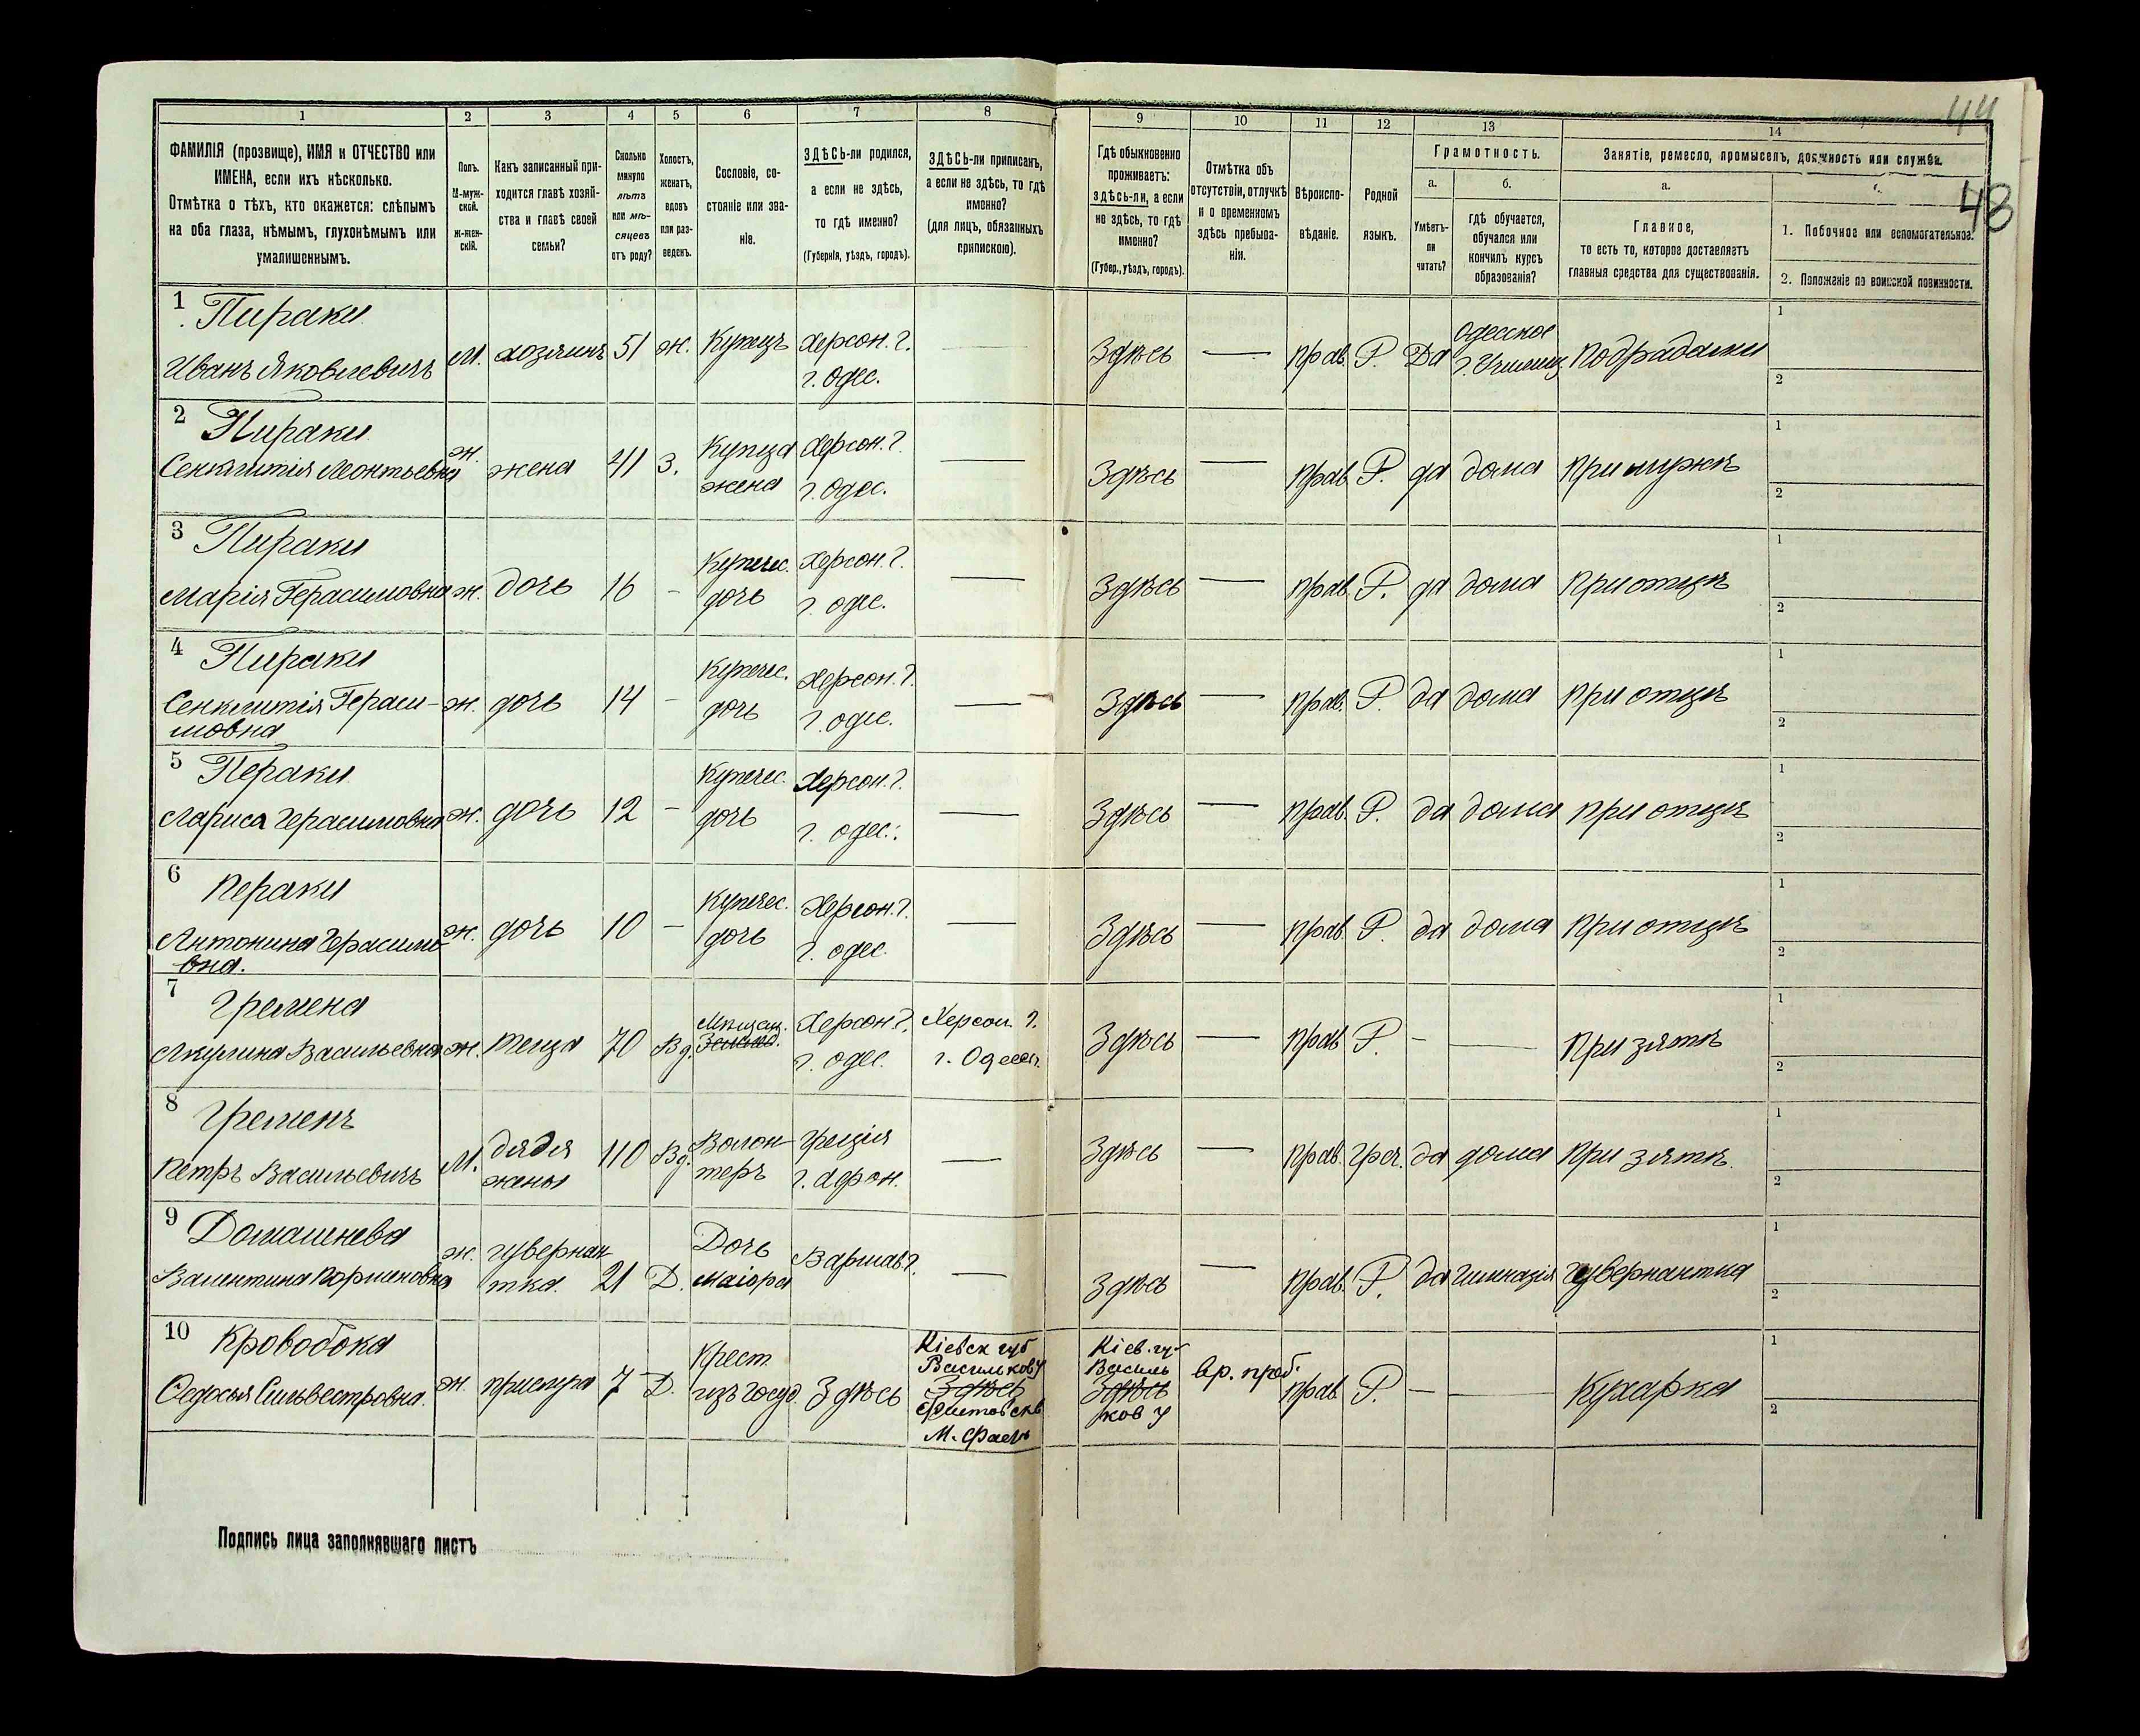 44
48
1 2 3 4 5 6 7 8 9 10 11 12 13 14
ФАМИЛІЯ (прозвище), ИМЯ и ОТЧЕСТВО или
ИМЕНА, если ихъ нѣсколько.
Отмѣтка о тѣхъ, кто окажется: слѣпымъ
на оба глаза, нѣмымъ, глухонѣмымъ или
умалишеннымъ.
Полъ.
М-муж-
ской.
ж-жен-
скій.
Какъ записанный при-
ходится главѣ хозяй-
ства и главѣ своей
семьи?
Сколько
минуло
лѣтъ
или мѣ-
сяцевъ
отъ роду?
Холостъ,
женатъ,
вдовъ
или раз-
веденъ.
Сословіе, со-
стояніе или зва-
ніе.
ЗДѢСЬ-ли родился,
а если не здѣсь,
то гдѣ именно?
(Губернія, уѣздъ, городъ).
ЗДѢСЬ-ли приписанъ,
а если не здѣсь, то гдѣ
именно?
(для лицъ, обязанныхъ
припискою).
Гдѣ обыкновенно
проживаетъ:
здѣсь-ли, а если
не здѣсь, то гдѣ
именно?
(Губер., уѣздъ, городъ).
Отмѣтка объ
отсутствіи, отлучкѣ
и о временномъ
здѣсь пребыва-
ніи.
Вѣроиспо-
вѣданіе.
Родной
языкъ.
Грамотность.
а.
Умѣетъ-
ли
читать?
б.
гдѣ обучается,
обучался или
кончилъ курсъ
образованія?
Занятіе, ремесло, промыселъ, должность или служба.
а.
Главное,
то есть то, которое доставляетъ
главныя средства для существованія.
1. Побочное или вспомогательное.
2. Положеніе по воинской повинности.
1 Пираки
Иванъ Яковлевичъ М. хозяинъ 51 ж. Купецъ Херсон. г. г. Одес. — Здѣсь — прав. Р. Да Одесское 1 2
2 Пираки
Леонтьевна ж. жена 41 з. Купца жена Херсон. г. г. Одес. — Здѣсь — прав. Р. да дома при мужѣ 1 2
3 Пираки
Марія Герасимовна ж. дочь 16 - Купечес. дочь Херсон. г. г. одес. — Здѣсь — прав. Р. да дома при отцѣ 1 2
4 Пираки
Гераси-
мовна ж. дочь 14 - Купечес. дочь Херсон. г. г. одес. — Здѣсь — прав. Р. да дома при отцѣ 1 2
5 Пераки
Лариса Герасимовна ж. дочь 12 - Купечес. дочь Херсон. г. г. одес. — Здѣсь — прав. Р. да дома при отцѣ 1 2
6 Пераки
Антонина Герасимо-
вна. ж. дочь 10 - Купечес. дочь Херсон. г. г. одес — Здѣсь — прав. Р. да дома при отцѣ 1 2
7
Акулина Васильевна ж. теща 70 Вд. Мѣщан. Херсон. г. г. одес. Херсон. г. г. Одесса. Здѣсь — прав. Р. - — При зятѣ 1 2
8
Петръ Васильевичъ М. дядя жены 110 Вд. Волон-теръ Греція — Здѣсь — прав. Греч. да дома при зятѣ. 1 2
9 Домашнева
Валентина ж. гувернан-тка. 21 Д. Дочь Маіора Варшав. г. — Здѣсь — прав. Р. да гимназія гувернантка 1 2
10 Кровобока
Ѳедосья Сильвестровна. ж. прислуга 7 Д. Крест. изъ госуд. Здѣсь Кіевск губ Васильков у Здѣсь Кіев. гу. Василь Здѣсь ков у вр. преб. прав. Р. - — Кухарка 1 2
Подпись лица заполнявшаго листъ